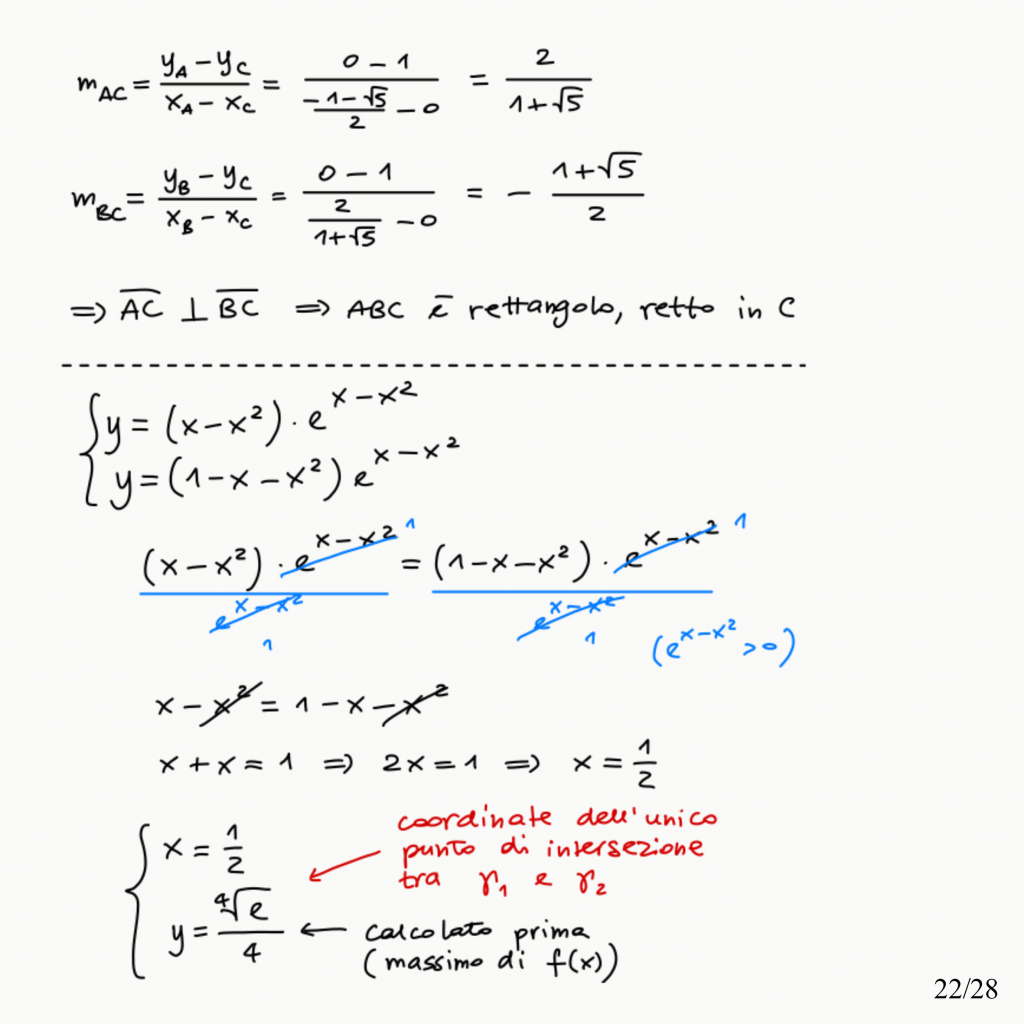 m_AC = (y_A − y_C)/(x_A − x_C) = (0 − 1)/((−1−√5)/2 − 0) = 2/(1+√5)
m_BC = (y_B − y_C)/(x_B − x_C) = (0 − 1)/(2/(1+√5) − 0) = − (1+√5)/2
⇒ A̅C̅ ⊥ B̅C̅ ⇒ ABC è rettangolo, retto in C
{ y = (x−x²) · e^(x−x²)
y = (1−x−x²) e^(x−x²)
(x−x²) · e^(x−x²) 1 = (1−x−x²) · e^(x−x²) 1
e^(x−x²) e^(x−x²)
1 1 (e^(x−x²) > 0)
x − x² = 1 − x − x²
x + x = 1 ⇒ 2x = 1 ⇒ x = 1/2
{ x = 1/2
coordinate dell'unico
punto di intersezione
tra γ₁ e γ₂
y = ⁴√e/4 ← calcolato prima
(massimo di f(x))
22/28